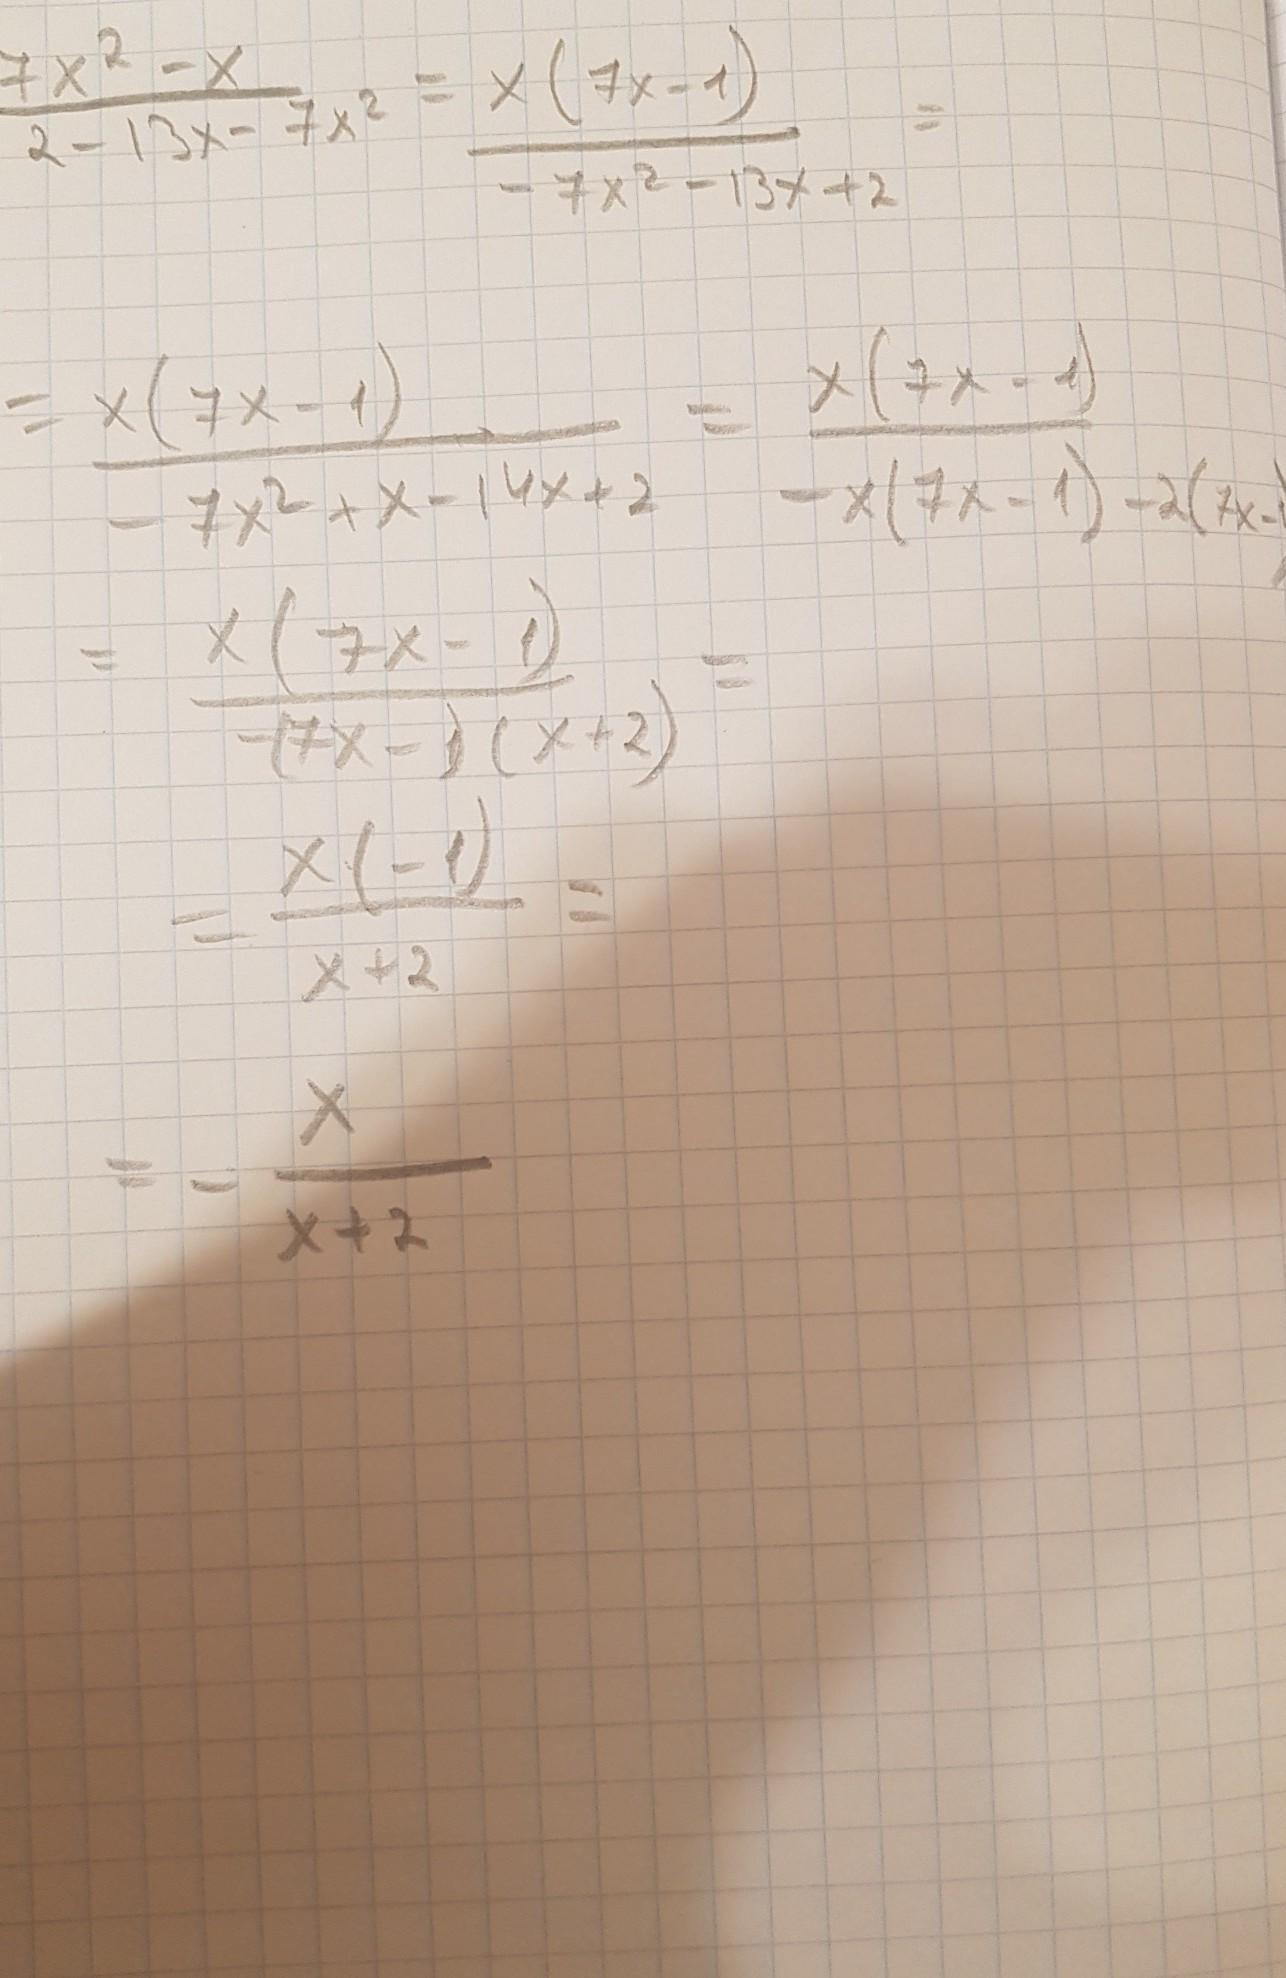 7x² - x / 2 - 13x - 7x² = x(7x-1) / -7x² - 13x + 2 =
= x(7x-1) / -7x² + x - 14x + 2 = x(7x-1) / -x(7x-1) -2(7x-1)
= x(7x-1) / -(7x-1)(x+2) =
= x(-1) / x+2 =
= - x / x+2